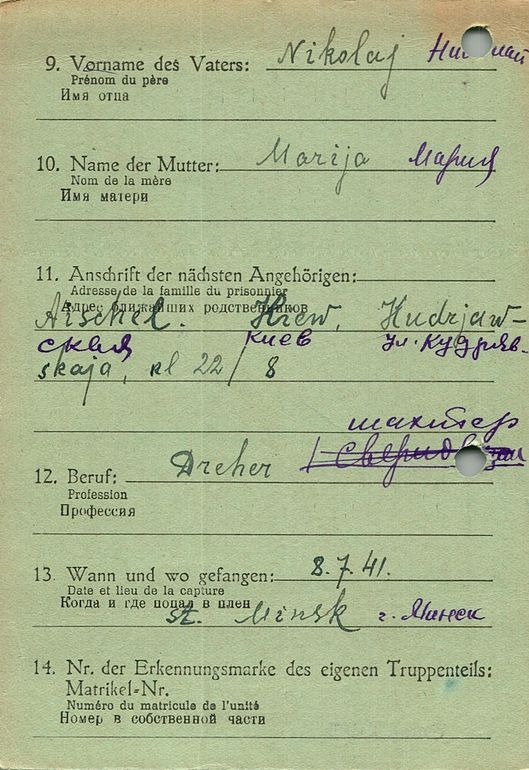 9. Vorname des Vaters: Nikolaj Николай
Prénom du père
Имя отца
10. Name der Mutter: Marija Мария
Nom de la mère
Имя матери
11. Anschrift der nächsten Angehörigen:
Adresse de la famille du prisonnier
Адрес ближайших родственников
Kiew, Kudrjaw-
ская Киев ул. Кудряв.
skaja, 22/8
шахтер
12. Beruf: Dreher
Profession
Профессия
13. Wann und wo gefangen: 8.7.41.
Date et lieu de la capture
Когда и где попал в плен
st. Minsk г. Минск
14. Nr. der Erkennungsmarke des eigenen Truppenteils:
Matrikel-Nr.
Numéro du matricule de l'unité
Номер в собственной части